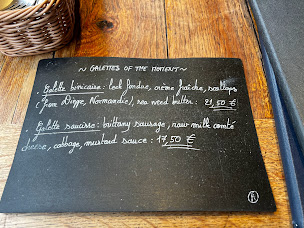 ~ GALETTES OF THE MOMENT ~
. Galette binicaise : leek fondue, crème fraîche, scallops
(from Dieppe, Normandie), sea weed butter : 21,50 €
. Galette saucisse : brittany sausage, raw milk comté
cheese, cabbage, mustard sauce : 17,50 €